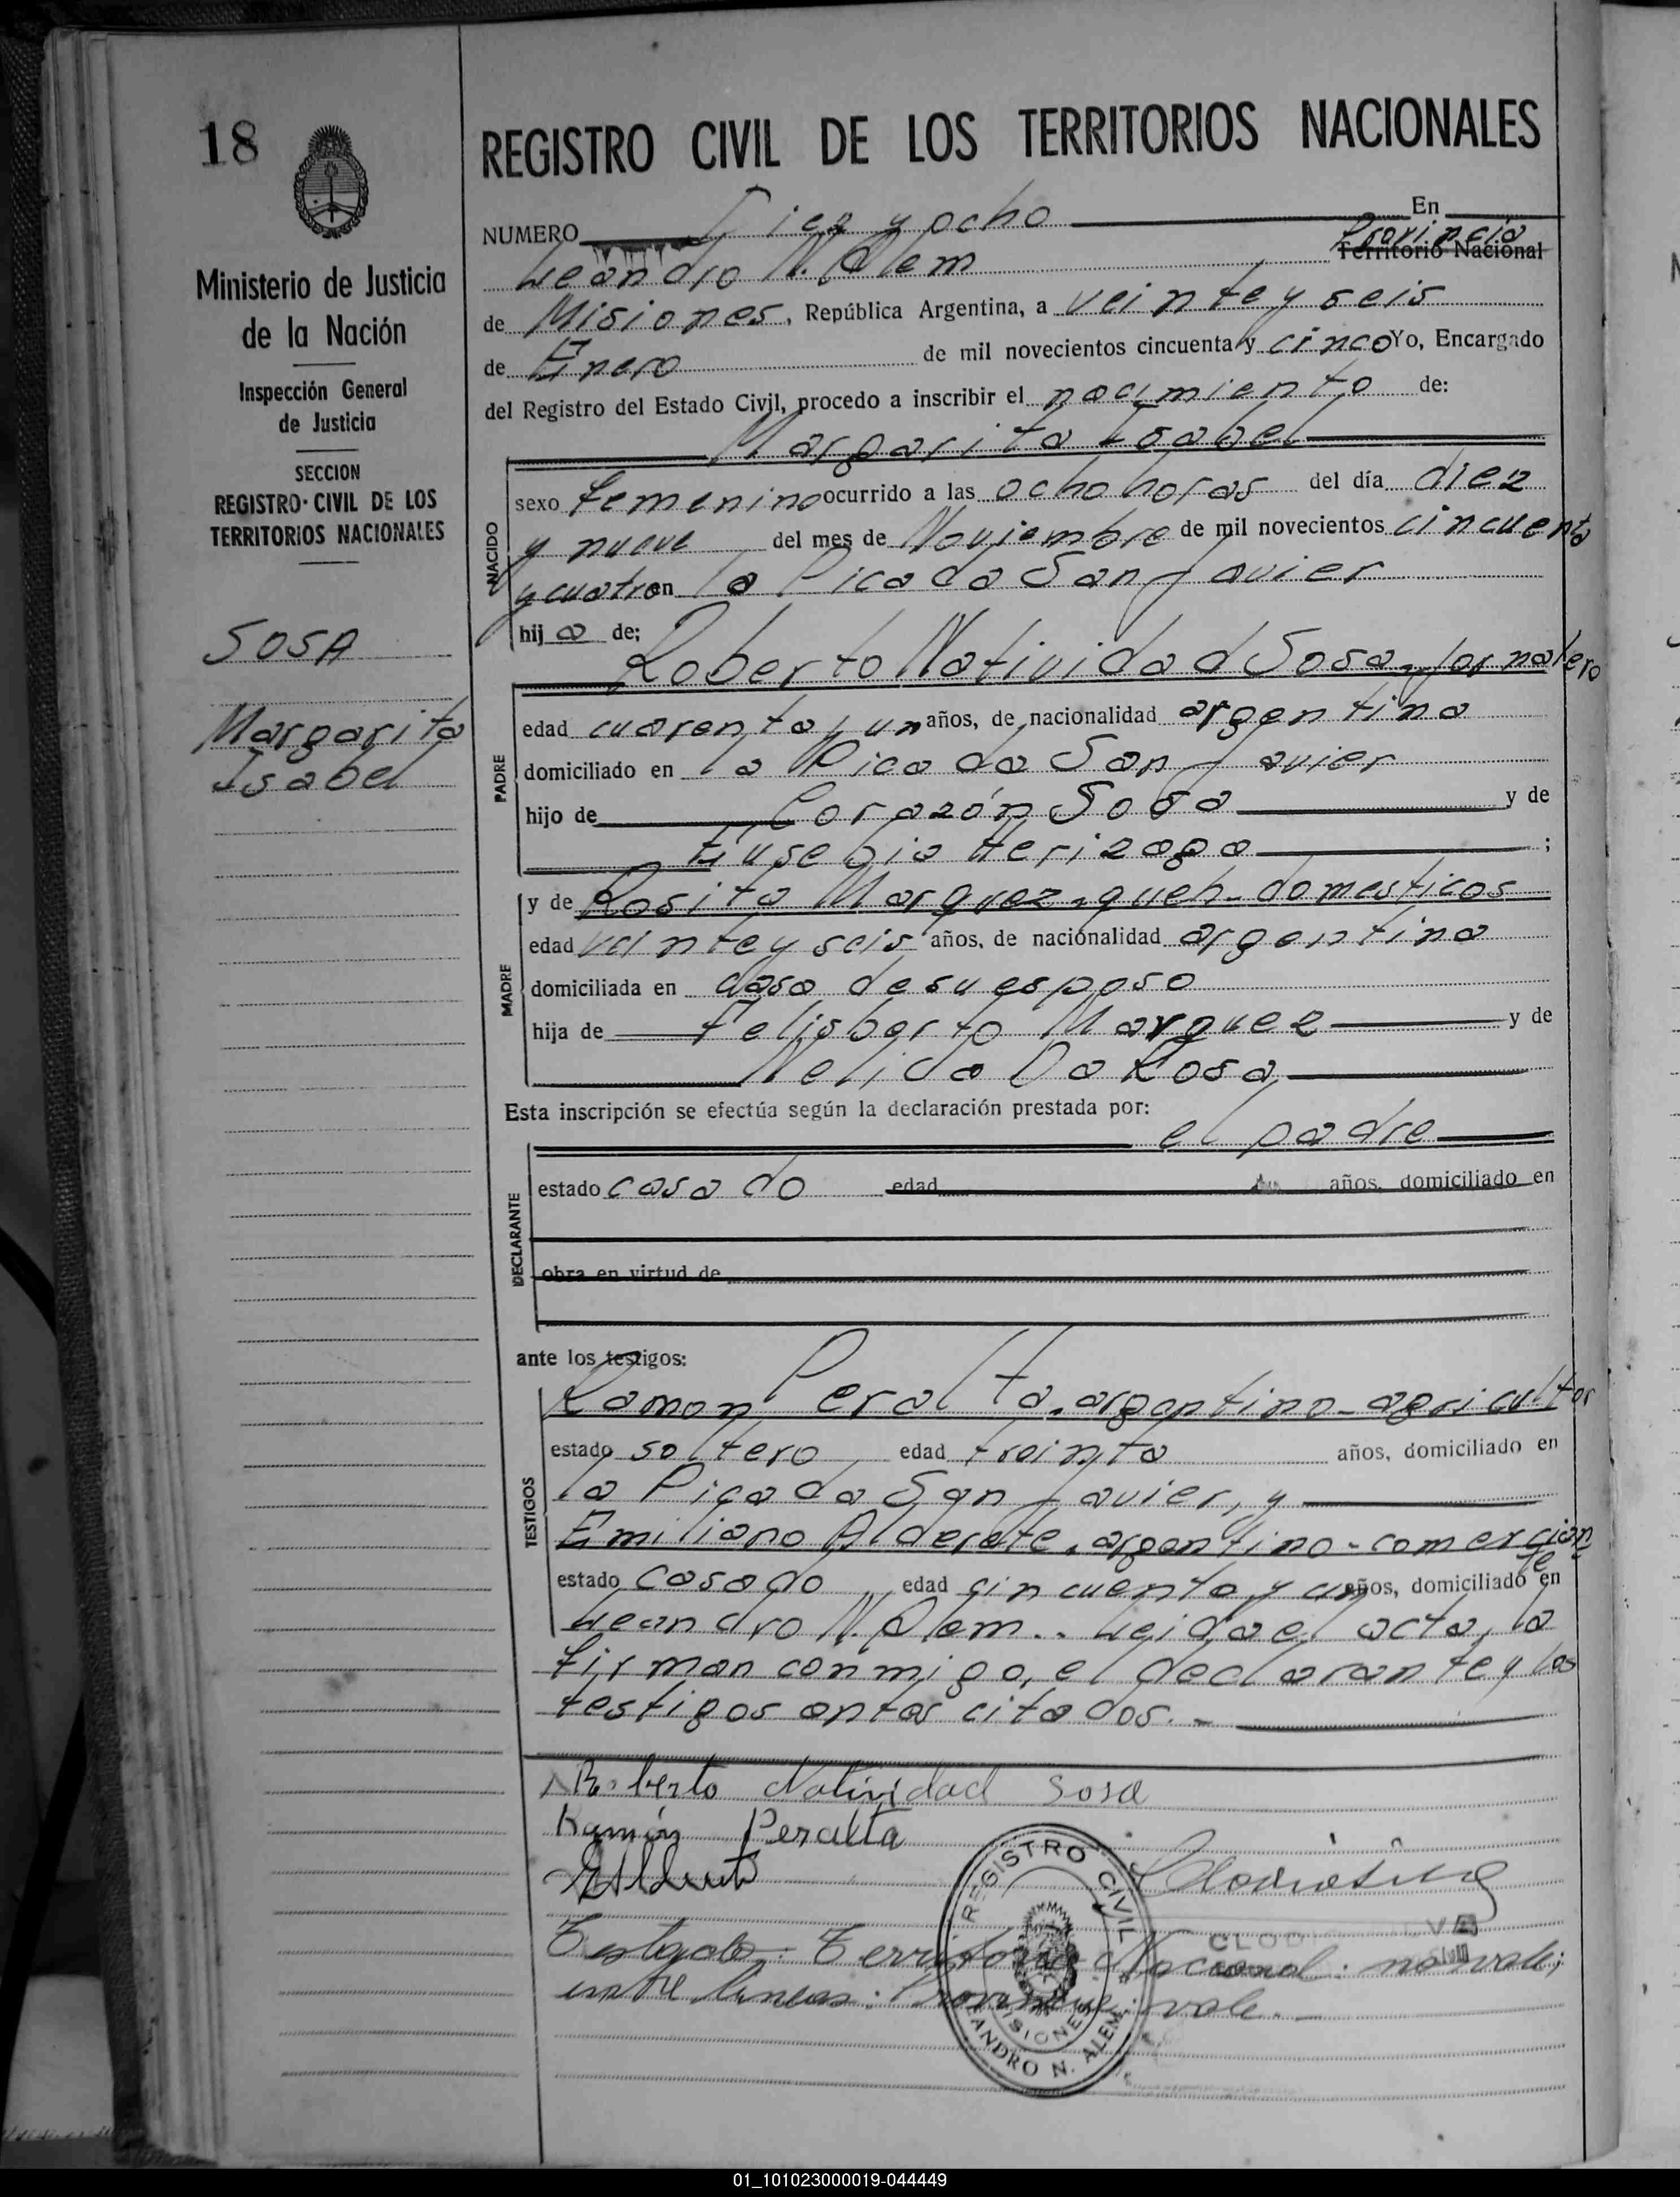 18
REGISTRO CIVIL DE LOS TERRITORIOS NACIONALES
NUMERO Diez y ocho En
Provincia
Leandro N. Alem Territorio Nacional
de Misiones, República Argentina, a veinte y seis
de Enero de mil novecientos cincuenta y cinco Yo, Encargado
del Registro del Estado Civil, procedo a inscribir el nacimiento de:
Margarita Isabel
Ministerio de Justicia
de la Nación
Inspección General
de Justicia
SECCION
REGISTRO CIVIL DE LOS
TERRITORIOS NACIONALES
SOSA
Margarita
Isabel
NACIDO
sexo femenino ocurrido a las ocho horas del día diez
y nueve del mes de Noviembre de mil novecientos cincuenta
y cuatro en la Picada San Javier
hija de;
Roberto Natividad Sosa, jornalero
PADRE
edad cuarenta y un años, de nacionalidad argentina
domiciliado en la Picada San Javier
hijo de Corazón Sosa y de
Eusebia Herizaga ;
MADRE
y de Rosita Marquez, queh. domesticos
edad veinte y seis años, de nacionalidad argentina
domiciliada en casa de su esposo
hija de Felisberto Marquez y de
Nelida Da Rosa,
Esta inscripción se efectúa según la declaración prestada por:
el padre
DECLARANTE
estado casado edad años, domiciliado en
obra en virtud de
ante los testigos:
TESTIGOS
Ramon Peralta, argentino - agricultor
estado soltero edad treinta años, domiciliado en
la Picada San Javier, y
Emiliano Alderete, argentino - comercian
te
estado casado edad cincuenta y un años, domiciliado en
Leandro N. Alem.. Leida el acta, la
firman conmigo, el declarante y los
testigos antes citados. -
Roberto Natividad Sosa
Ramón Peralta
REGISTRO CIVIL
MISIONES
LEANDRO N. ALEM
Testado: Territorio Nacional: no vale;
entre lineas: Provincia: vale. -
01_101023000019-044449